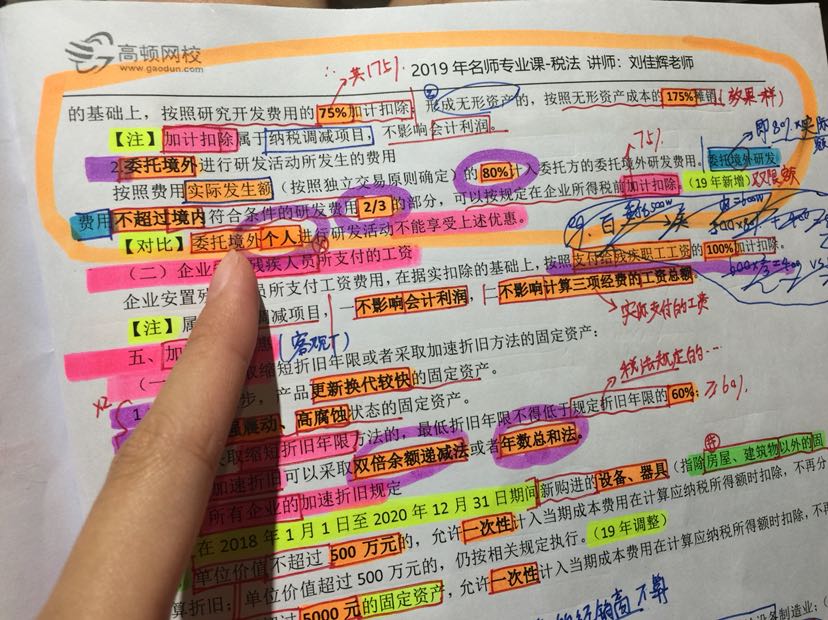 高顿网校
www.gaodun.com
2019年名师专业课-税法 讲师：刘佳辉老师
共175%
的基础上，按照研究开发费用的75%加计扣除；形成无形资产的，按照无形资产成本的175%摊销。(效果一样)
【注】加计扣除属于纳税调减项目，不影响会计利润。
75%
2.委托境外进行研发活动所发生的费用
按照费用实际发生额（按照独立交易原则确定）的80%计入委托方的委托境外研发费用。委托境外研发
费用不超过境内符合条件的研发费用2/3的部分，可以按规定在企业所得税前加计扣除。（19年新增）双限额
【对比】委托境外个人进行研发活动不能享受上述优惠。
（二）企业 残疾人员所支付的工资
企业安置 员所支付工资费用，在据实扣除的基础上，按照支付给残疾职工工资的100%加计扣除。
【注】属 调减项目，一不影响会计利润，一不影响计算三项经费的工资总额
实际支付的工资
五、加 (客观T)
取缩短折旧年限或者采取加速折旧方法的固定资产：
税法规定的…
（一 步，产品更新换代较快的固定资产。
x2
强震动、高腐蚀状态的固定资产。
取缩短折旧年限方法的，最低折旧年限不得低于规定折旧年限的60%； ≥60%
加速折旧可以采取双倍余额递减法或者年数总和法。
所有企业的加速折旧规定
在2018年1月1日至2020年12月31日期间新购进的设备、器具（指除房屋、建筑物以外的固
单位价值不超过500万元的，允许一次性计入当期成本费用在计算应纳税所得额时扣除，不再分
算折旧；单位价值超过500万元的，仍按相关规定执行。（19年调整）
5000元的固定资产，允许一次性计入当期成本费用在计算应纳税所得额时扣除，不再